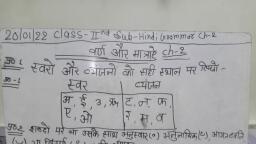 20/01/22 Class-IInd Sub-Hindi Grammar Ch-2
वर्ण और मात्राएँ Ch-2
प्रश्न 1 स्वरों और व्यंजनों को सही स्थान पर लिखो-
स्वर व्यंजन
अ, ई, उ, ऋ ट, त, क,
ए, ओ र, स, व
प्रश्न 2 शब्दों पर या उसके साथ अनुस्वार(ं) अनुनासिक(ँ)